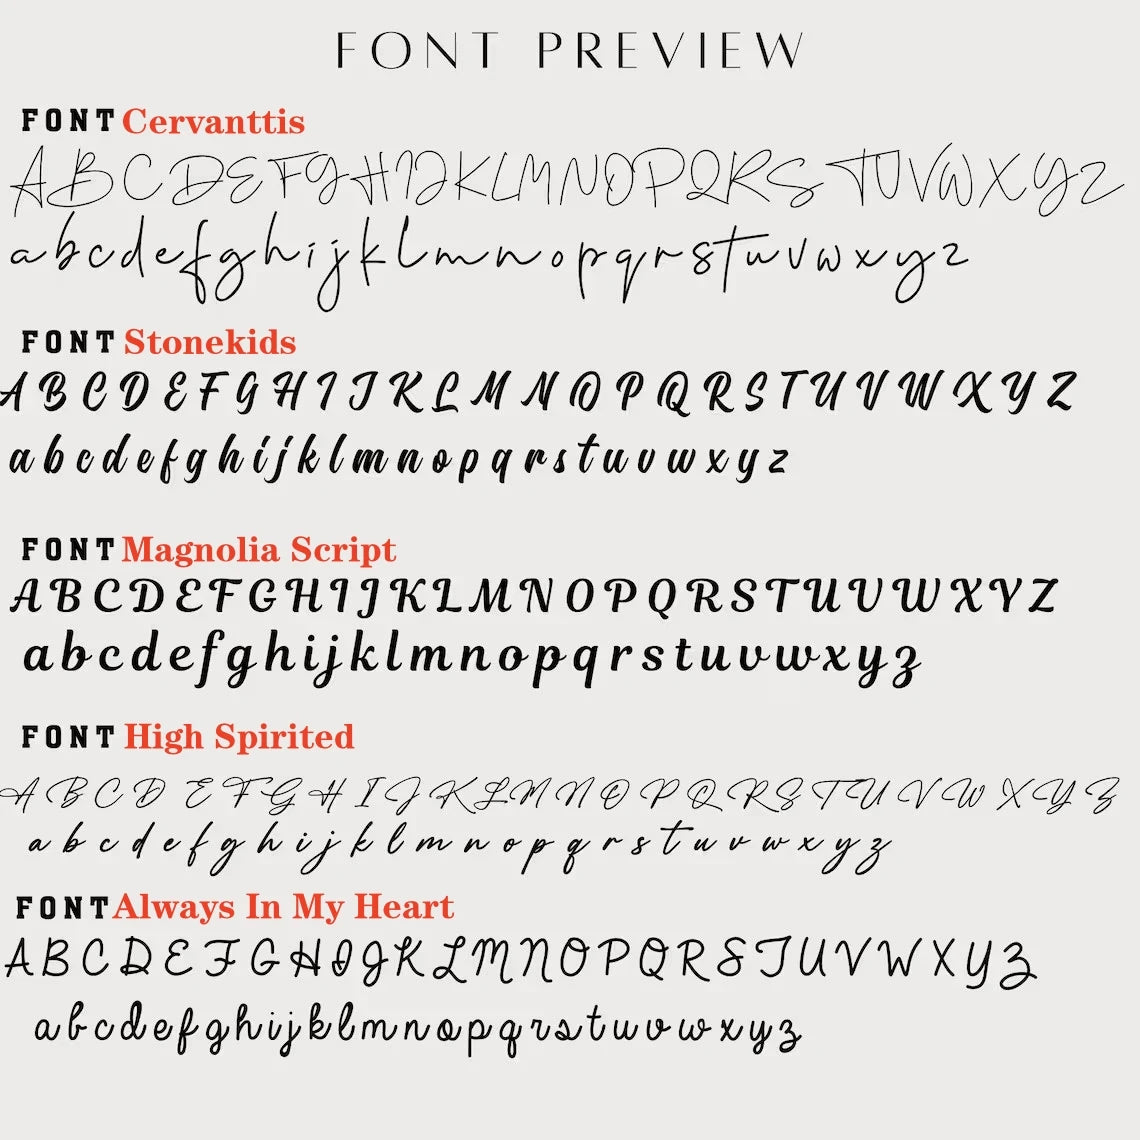 FONT PREVIEW
FONT Cervanttis
ABCDEFGHIJKLMNOPQRSTUVWXYZ
abcdefghijklmnopqrstuvwxyz
FONT Stonekids
ABCDEFGHIJKLMNOPQRSTUVWXYZ
abcdefghijklmnopqrstuvwxyz
FONT Magnolia Script
ABCDEFGHIJKLMNOPQRSTUVWXYZ
abcdefghijklmnopqrstuvwxyz
FONT High Spirited
ABCDEFGHIJKLMNOPQRSTUVWXYZ
abcdefghijklmnopqrstuvwxyz
FONT Always In My Heart
ABCDEFGHIJKLMNOPQRSTUVWXYZ
abcdefghijklmnopqrstuvwxyz